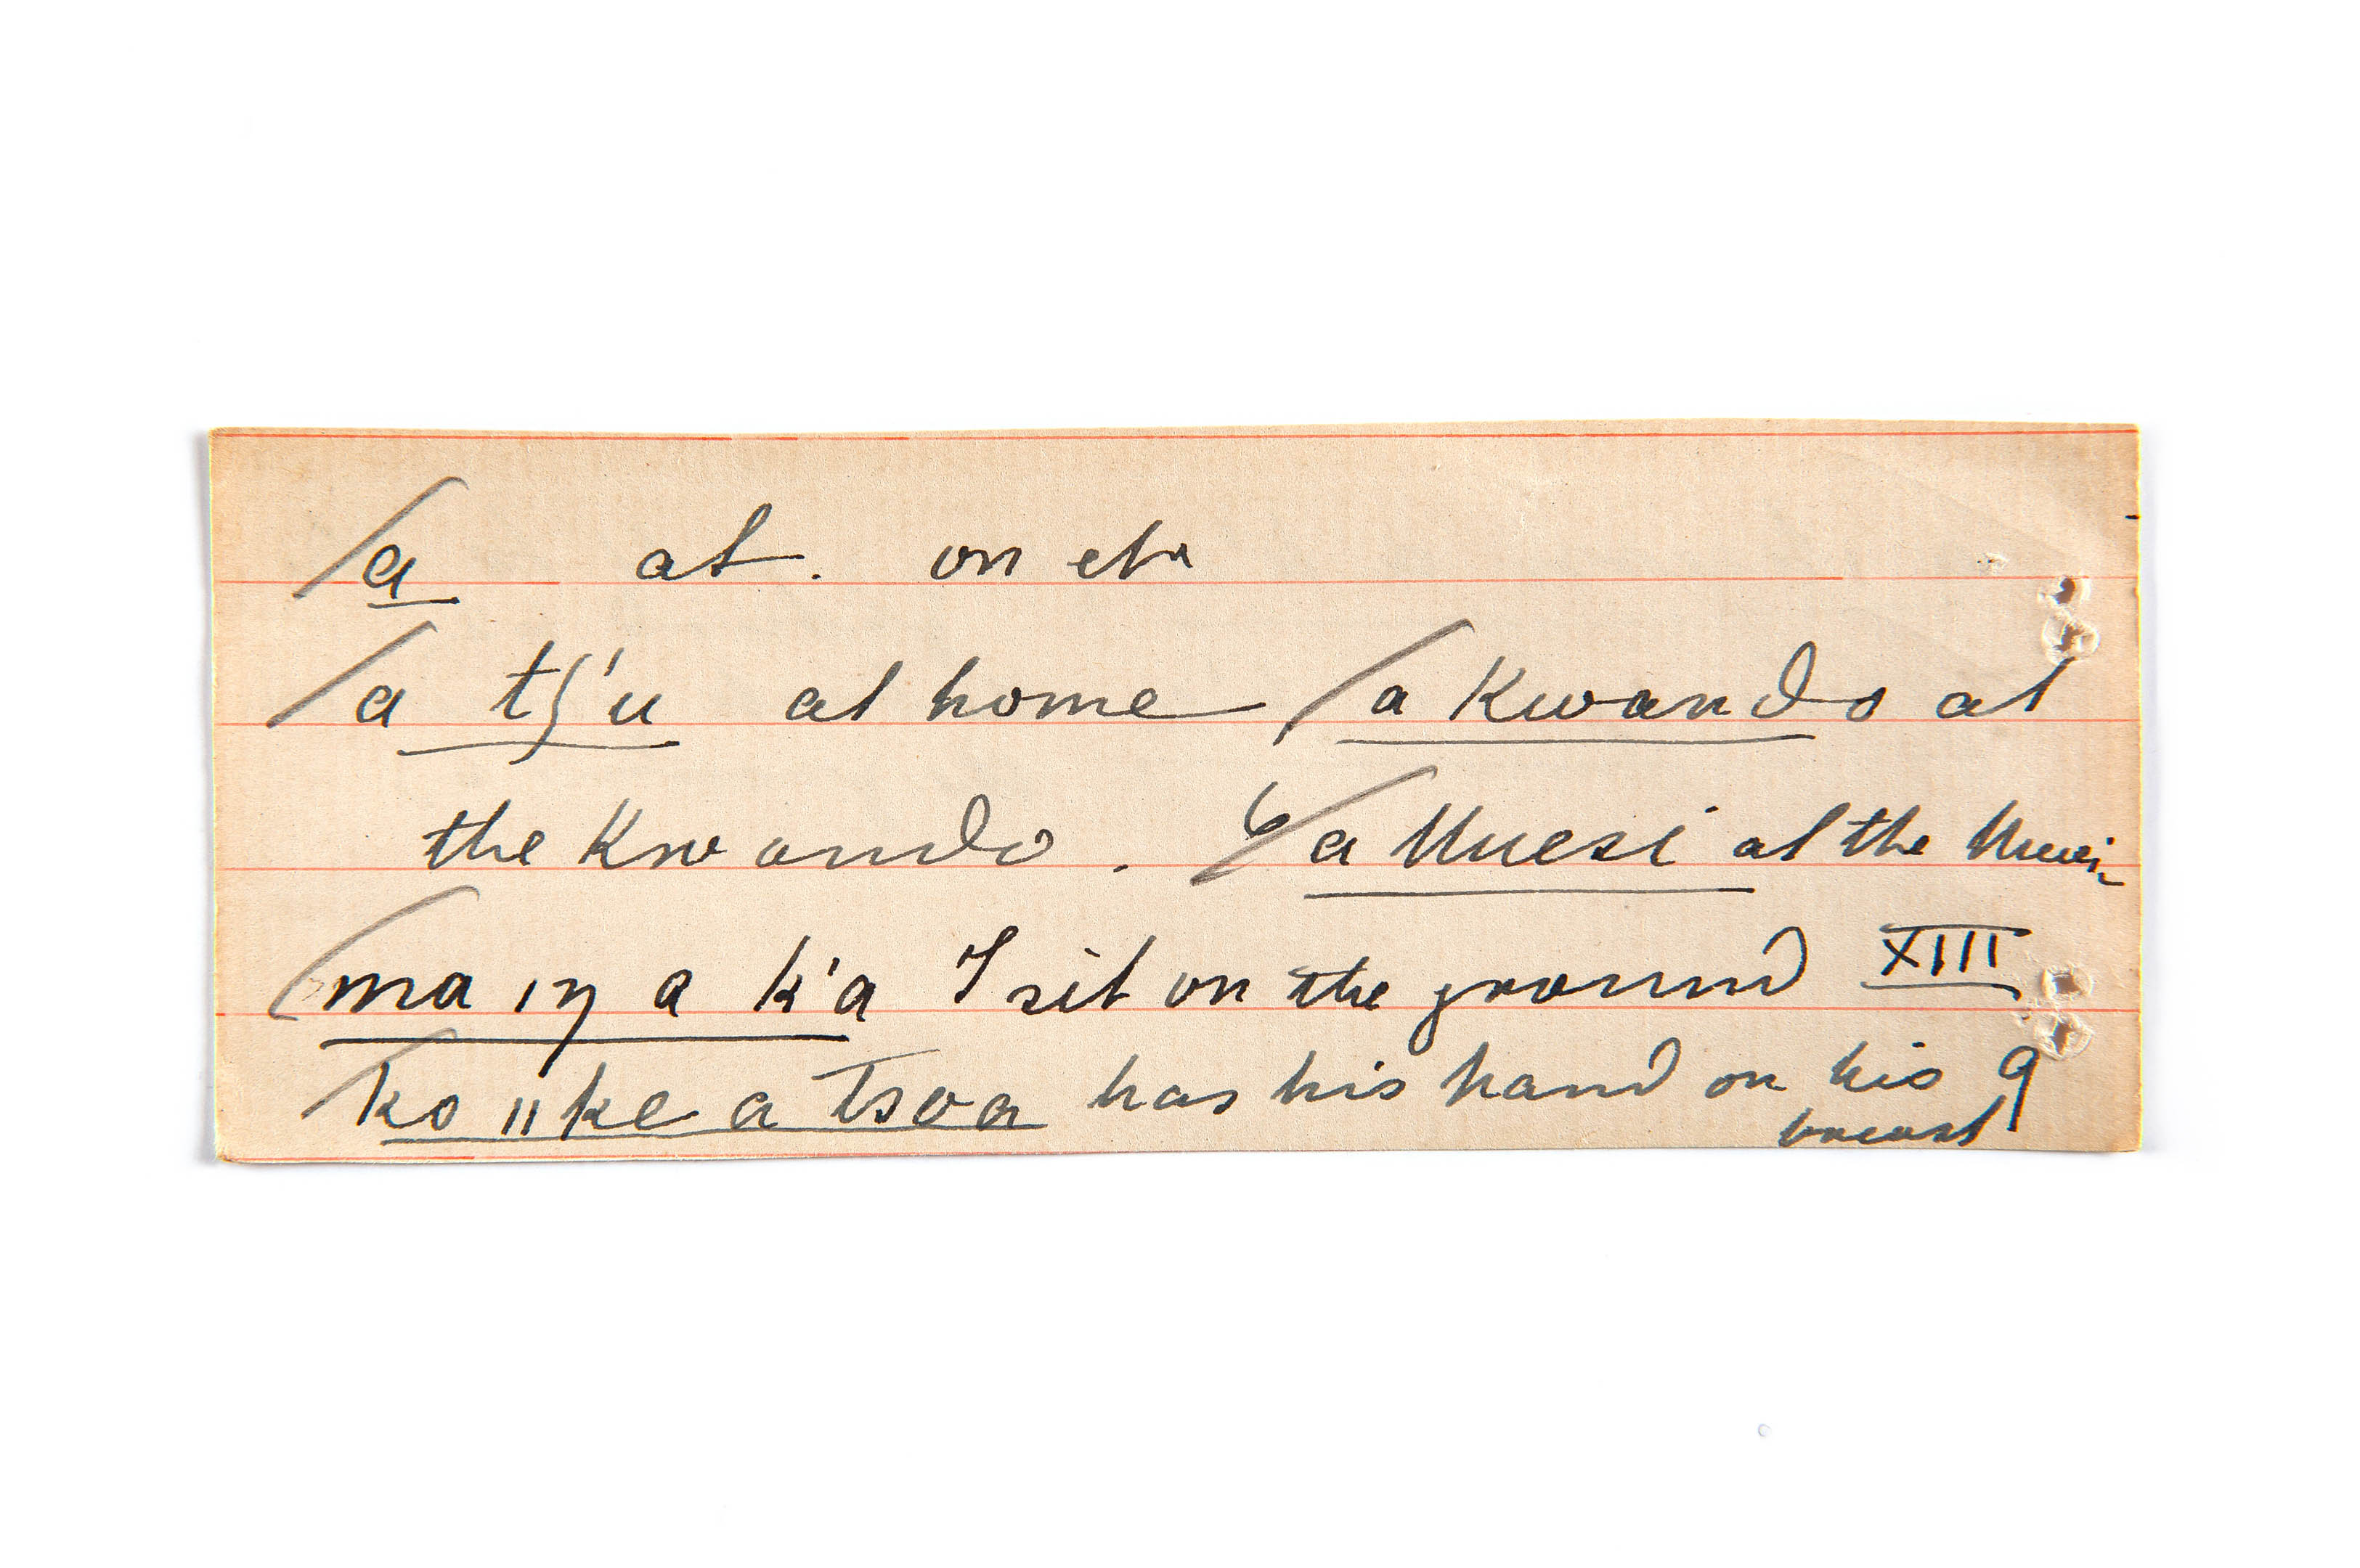 a at. on etc
a tʃ'u at home a Kwando at
the Kwando. a at the
ma ıŋ a k'a I sit on the ground XIII
ko ıı ke a tsoa has his hand on his 9
breast